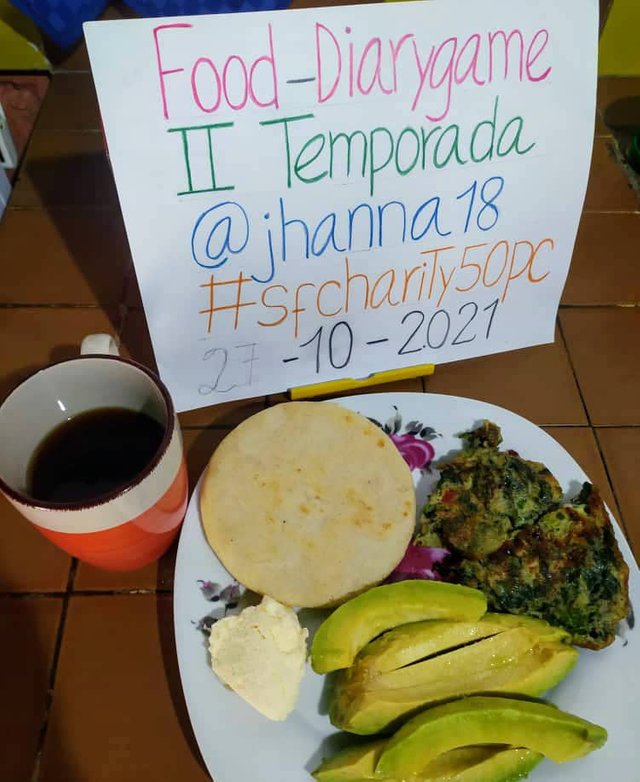 Food-Diarygame
II Temporada
@jhanna18
#sfchariTy50pc
27-10-2021